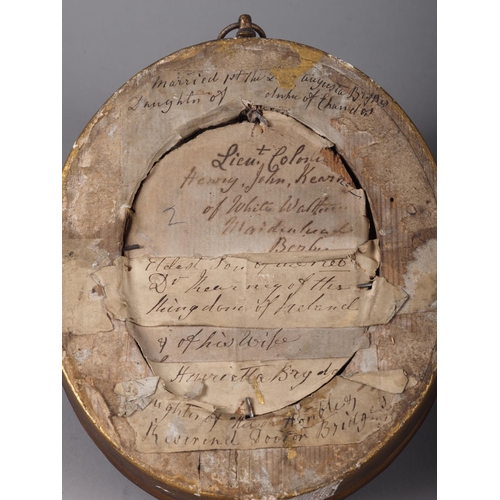 Married 1st the Augusta Brydges
Daughter of Duke of Chandos
Lieut. Colonel
Henry, John, Kearney
of White Waltham
Maidenhead
Berks
2
Eldest Son of
Dr Kearney of the
Kingdom of Ireland
& of his Wife
Henrietta Brydges
Reverend Doctor Bridges